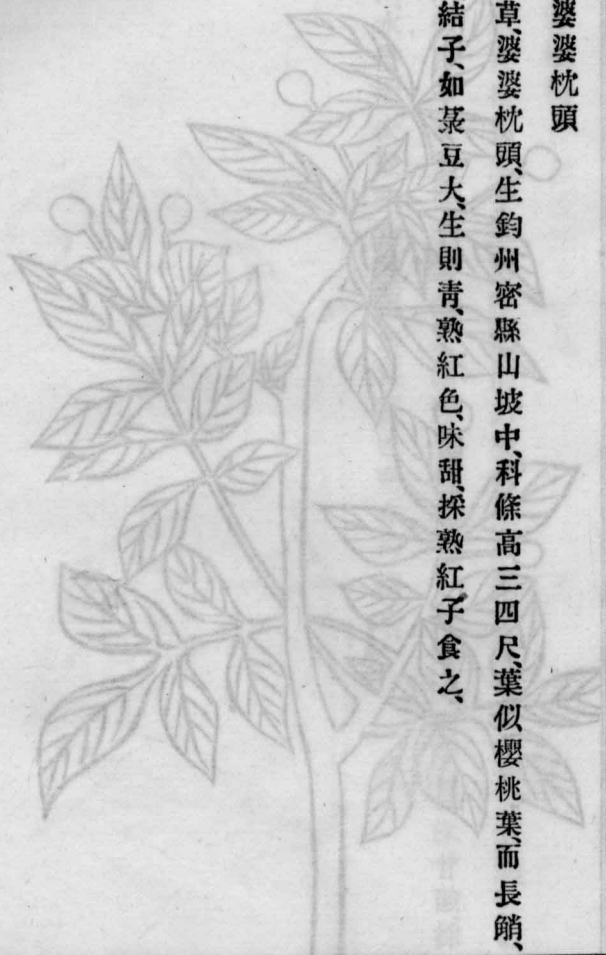 婆婆枕頭
草、婆婆枕頭、生鈞州密縣山坡中、科條高三四尺、葉似櫻桃葉、而長䚣、
結子、如菉豆大、生則靑、熟紅色、味甜、採熟紅子食之、